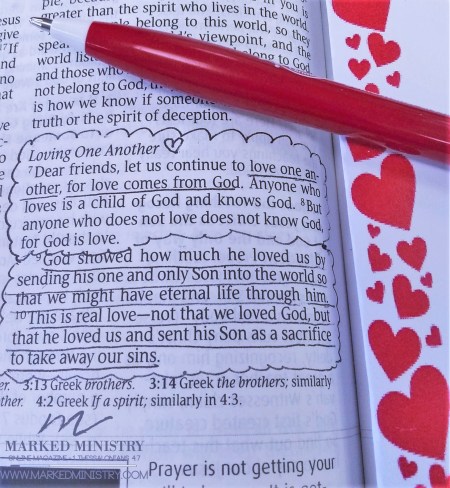 ple, bec in you is
greater than the spirit who lives in the world.
ple belong to this world, so they
spea 's viewpoint, and the
world list long to God
and those who
not belong to God,
is how we know if someone
truth or the spirit of deception.
esus
give
17If
nd
no
at
Loving One Another
7Dear friends, let us continue to love one an-
other, for love comes from God. Anyone who
loves is a child of God and knows God. 8But
anyone who does not love does not know God,
for God is love.
9God showed how much he loved us by
sending his one and only Son into the world so
that we might have eternal life through him.
10This is real love—not that we loved God, but
that he loved us and sent his Son as a sacrifice
to take away our sins.
er. 3:13 Greek brothers. 3:14 Greek the brothers; similarly
ther. 4:2 Greek If a spirit; similarly in 4:3.
m
MARKED MINISTRY
ONLINE MAGAZINE • 1 THESSALONIANS 4:7
WWW.MARKEDMINISTRY.COM
Prayer is not getting your